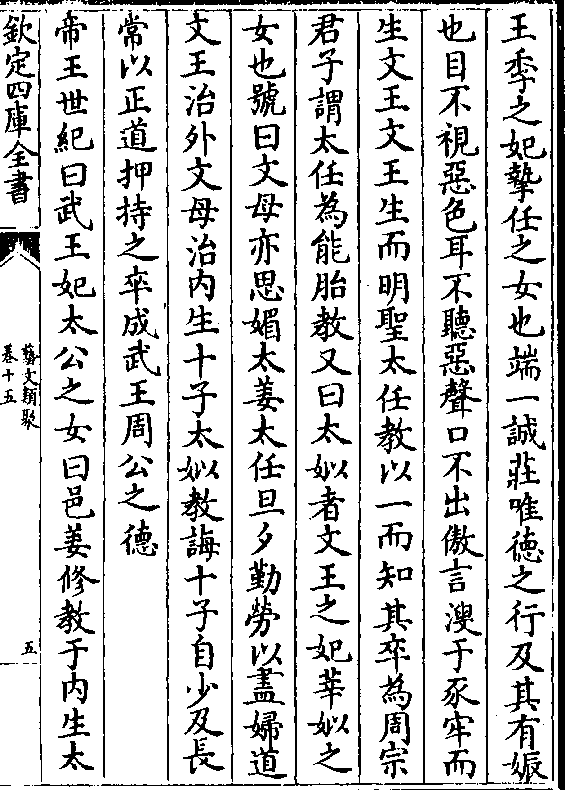 王季之妃摯任之女也端一誠莊唯德之行及其有娠
也目不視惡色耳不聽惡聲口不出傲言溲于豕牢而
生文王文王生而明聖太任教以一而知其卒為周宗
君子謂太任為能胎教又曰太姒者文王之妃莘姒之
女也號曰文母亦思媚太姜太任旦夕勤勞以盡婦道
文王治外文母治内生十子太姒教誨十子自少及長
常以正道押持之卒成武王周公之德
帝王世紀曰武王妃太公之女曰邑姜修教于内生太
欽定四庫全書
藝文類聚
卷十五
五